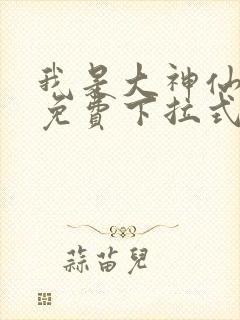 我是大神仙
免費下拉式
蒜苗兒